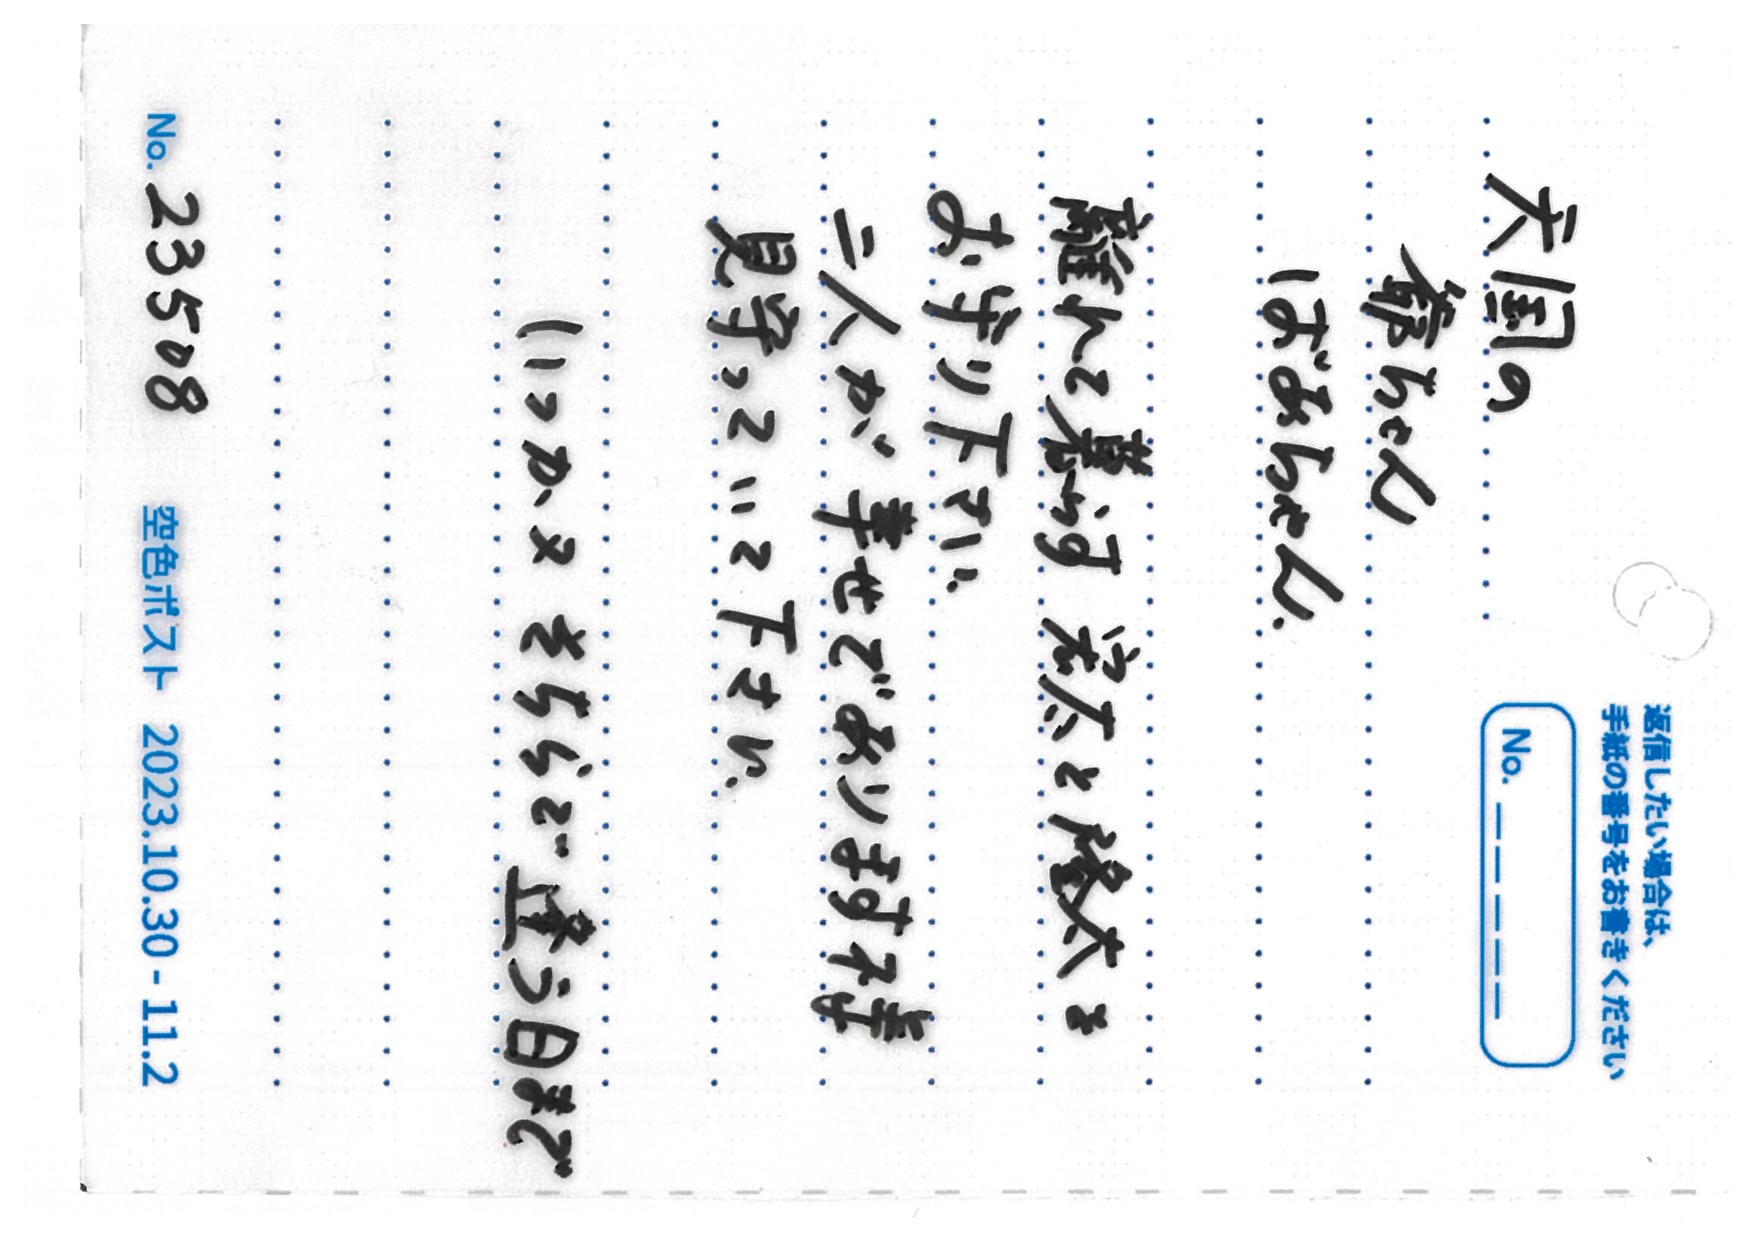 返信したい場合は、
手紙の番号をお書きください
No. _ _ _ _ _
天国の
爺ちゃん
ばあちゃん.
離れて暮らす 宏太と隆太を
お守り下さい.
二人が 幸せであります様
見守っていて下さい.
いつか又 そちらで逢う日まで
No. 23508
空色ポスト 2023.10.30 - 11.2